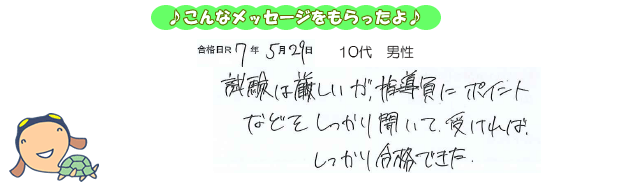 ♪こんなメッセージをもらったよ♪
合格日R7年5月29日 10代 男性
試験は厳しいが、指導員にポイント
などをしっかり聞いて、受ければ、
しっかり合格できた。